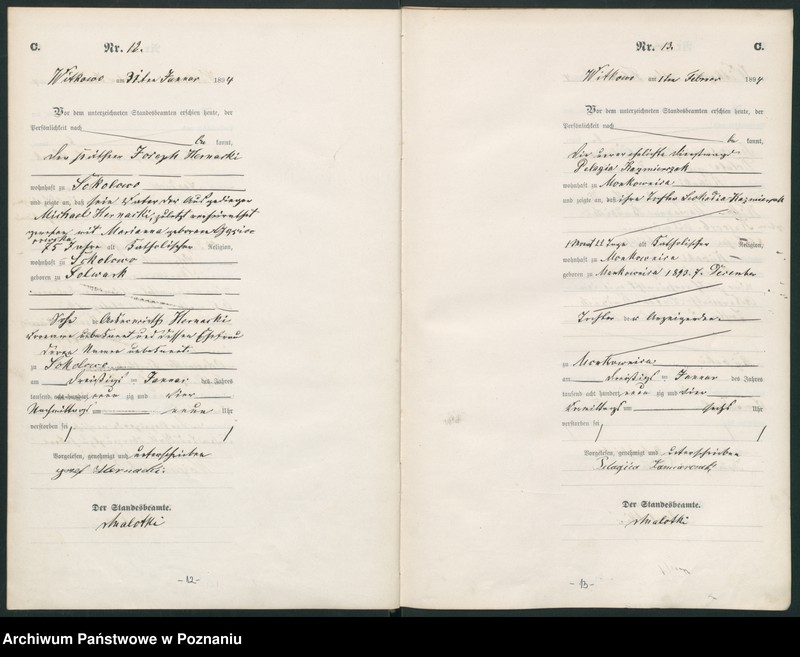 C.
Nr. 12.
Witkowo am 31ten Januar 1894
Vor dem unterzeichneten Standesbeamten erschien heute, der
Persönlichkeit nach
be kannt,
der Joseph Hernacki
wohnhaft zu Sokolowo
und zeigte an, daß sein Vater der Ausgedinger
Michael Hernacki, zuletzt verheirathet
gewesen mit Marianna geborene
75 Jahre alt katholischer Religion,
wohnhaft zu Sokolowo
geboren zu Folwark
Sohn Ackerwirth Hernacki
Vorname unbekannt und dessen Ehefrau
deren Namen unbekannt.
zu Sokolowo
am dreißigs ten Januar des Jahres
tausend acht hundert neun zig und vier
Nachmittags um neun Uhr
verstorben sei
Vorgelesen, genehmigt und unterschrieben
Hernacki.
Der Standesbeamte.
Malotki
-12-
Nr. 13.
C.
Witkowo am 1ten Februar 1894
Vor dem unterzeichneten Standesbeamten erschien heute, der
Persönlichkeit nach
be kannt,
die unverehelichte Dienstmagd
Pelagia Kazmierczak
wohnhaft zu
und zeigte an, daß ihre Tochter
1 Monat 22 Tage alt katholischer Religion,
wohnhaft zu
geboren zu 1893. 7. Dezember
Tochter der Anzeigenden.
zu
am dreißigs ten Januar des Jahres
tausend acht hundert neun zig und vier
Vormittags um sechs Uhr
verstorben sei
Vorgelesen, genehmigt und unterschrieben
Pelagiia
Der Standesbeamte.
Malotki
-13-
Archiwum Państwowe w Poznaniu